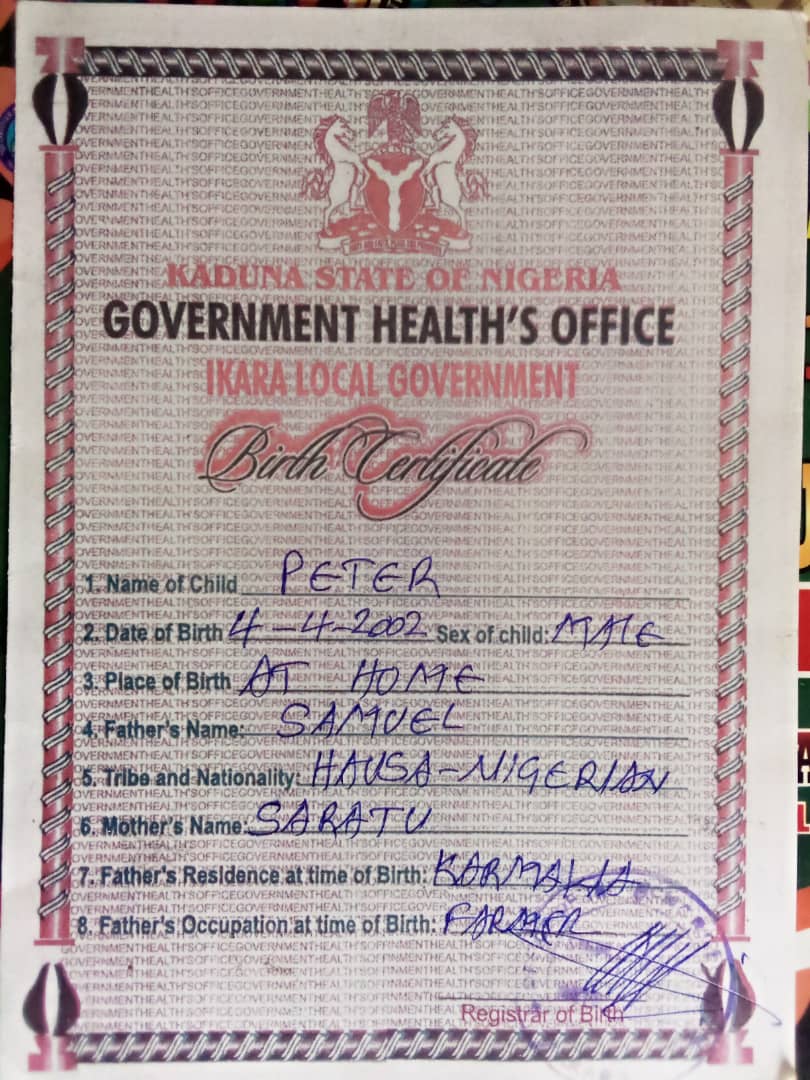 KADUNA STATE OF NIGERIA
GOVERNMENT HEALTH'S OFFICE
IKARA LOCAL GOVERNMENT
Birth Certificate
1. Name of Child PETER
2. Date of Birth 4-4-2002 Sex of child: MALE
3. Place of Birth AT HOME
4. Father's Name: SAMUEL
5. Tribe and Nationality: HAUSA-NIGERIAN
6. Mother's Name: SARATU
7. Father's Residence at time of Birth: KARMAKA
8. Father's Occupation at time of Birth: FARMER
Registrar of Birth